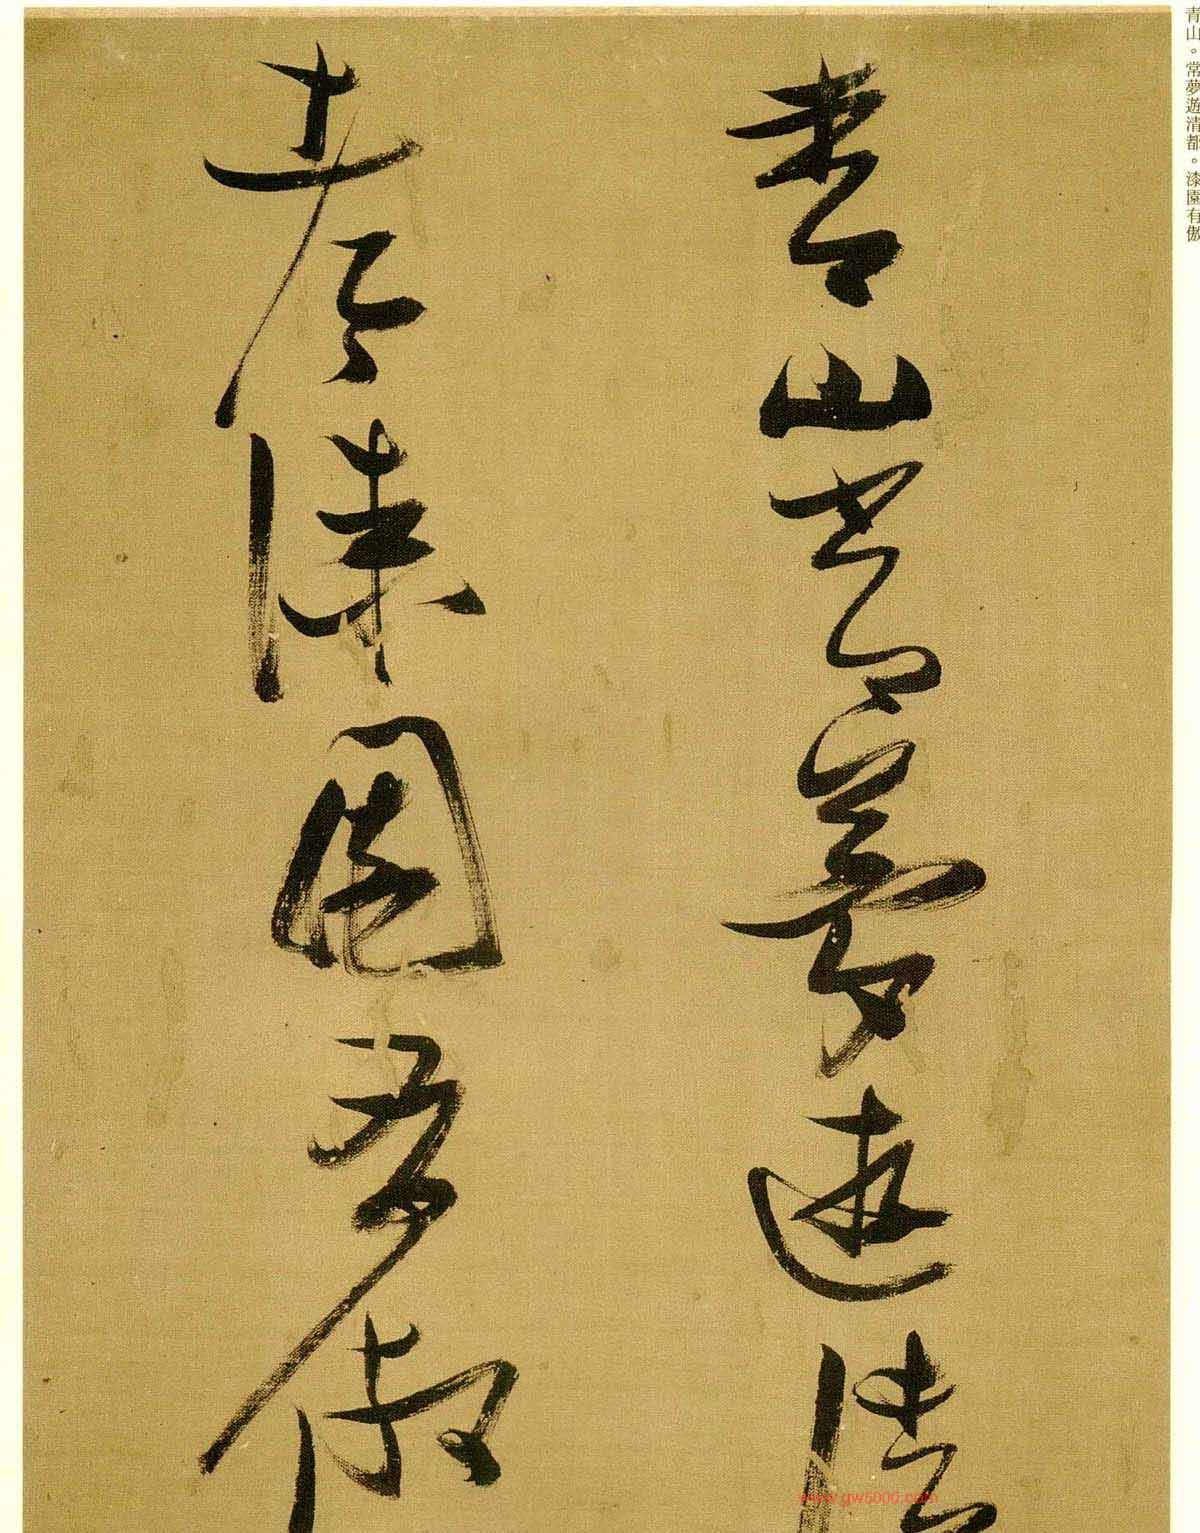 青山。常夢遊清都。漆園有傲
青山常夢遊清
都漆園有傲
www.gw5000.com